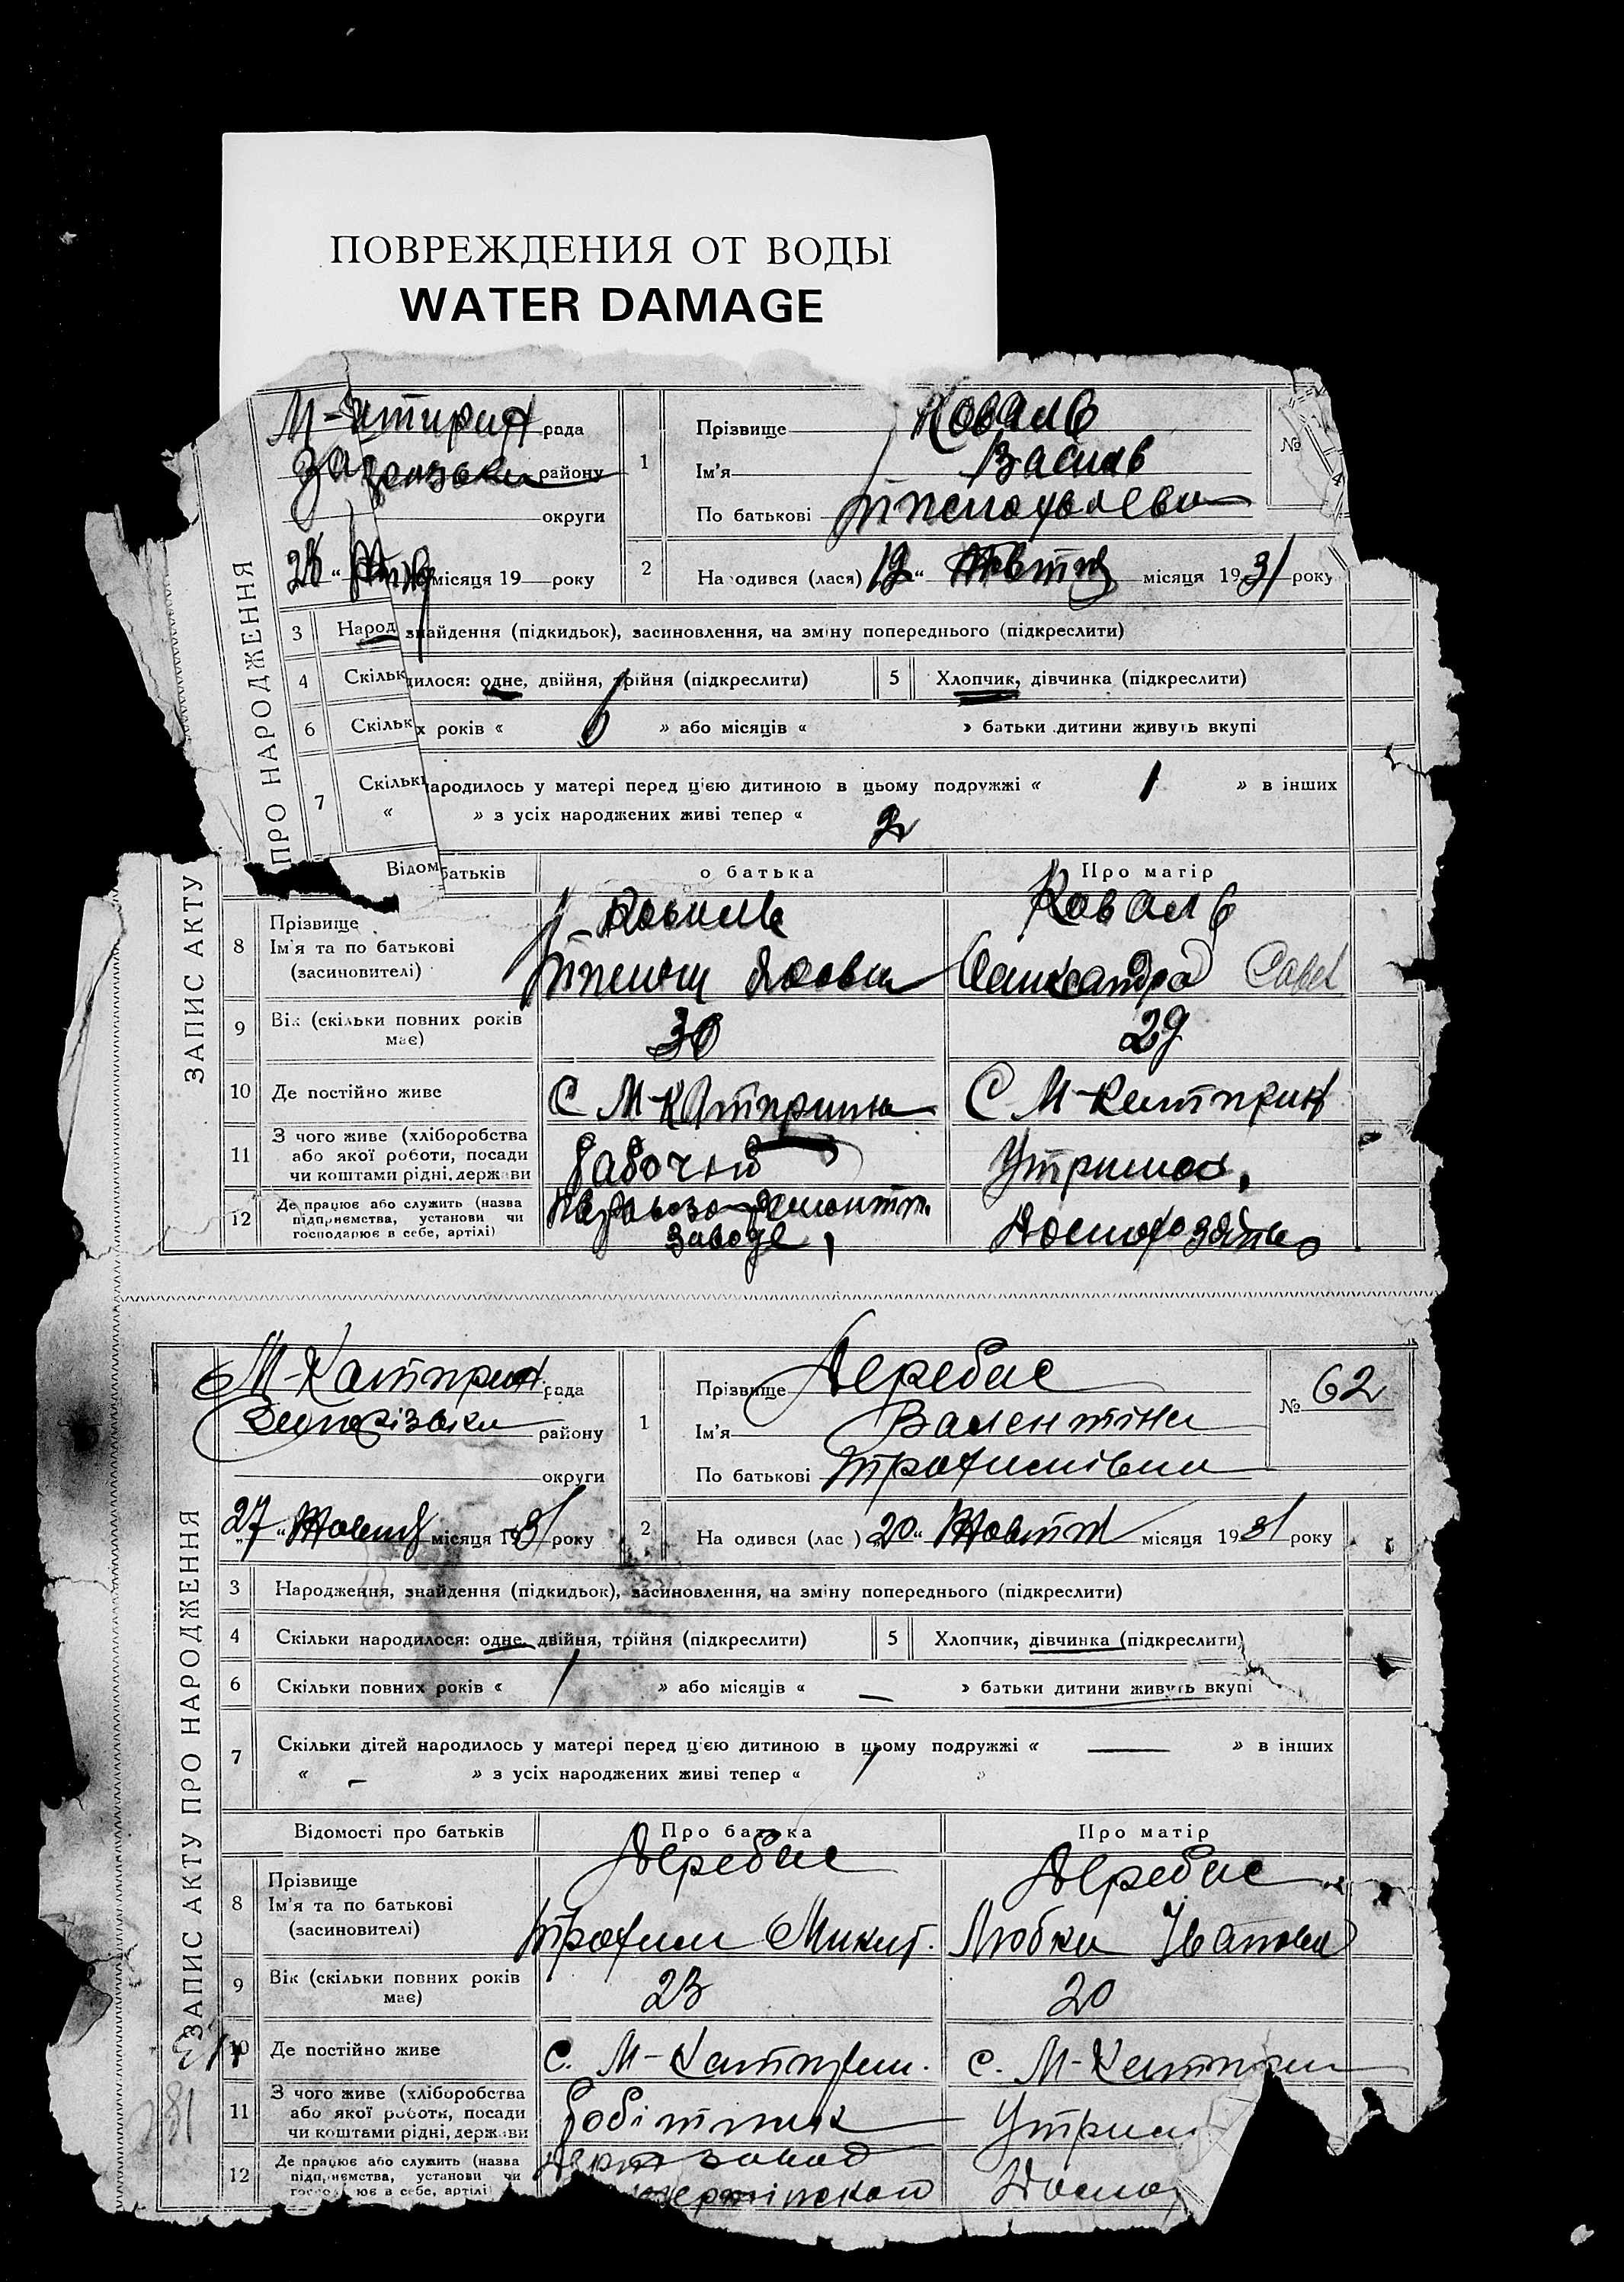 ПОВРЕЖДЕНИЯ ОТ ВОДЫ
WATER DAMAGE
рада
району
округи
місяця 19 року
1
Прізвище Коваль
Ім'я Василь
По батькові
№
2
На одився (лася) 19 " Жовтня місяця 1931 року
3 Народ знайдення (підкидьок), засиновлення, на зміну попереднього (підкреслити)
4 Скільк дилося: одне, двійня, трійня (підкреслити)
5 Хлопчик, дівчинка (підкреслити)
6 Скільк х років « 6 » або місяців « » батьки дитини живуть вкупі
7 Скількі народилось у матері перед цією дитиною в цьому подружжі « 1 » в інших
« » з усіх народжених живі тепер « 2
Відом батьків
о батька
Про матір
ЗАПИС АКТУ ПРО НАРОДЖЕННЯ
8 Прізвище
Ім'я та по батькові
(засиновителі)
Коваль
Коваль
Олександра
9 Вік (скільки повних років
має)
30
29
10 Де постійно живе
С М-Катерин
С М-Катерин
11 З чого живе (хліборобства
або якої роботи, посади
чи коштами рідні, держави
Рабочий
Утриман,
12 Де працює або служить (назва
підприємства, установи чи
господарює в себе, артілі)
Паровозо-ремонтн.
заводе,
Домохозяйка
М-Катерин рада
району
округи
27 " Жовтня місяця 1931 року
1
Прізвище Деребас
Ім'я Валентина
По батькові Трофимівна
№ 62
2
На одився (лас ) 20 " Жовтня місяця 1931 року
3 Народження, знайдення (підкидьок), засиновлення, на зміну попереднього (підкреслити)
4 Скільки народилося: одне, двійня, трійня (підкреслити)
5 Хлопчик, дівчинка (підкреслити)
6 Скільки повних років « 1 » або місяців « — » батьки дитини живуть вкупі
7 Скільки дітей народилось у матері перед цією дитиною в цьому подружжі « — » в інших
« - » з усіх народжених живі тепер « 1 »
Відомості про батьків
Про батька
Про матір
ЗАПИС АКТУ ПРО НАРОДЖЕННЯ
8 Прізвище
Ім'я та по батькові
(засиновителі)
Деребас
Трофим Микит.
Деребас
Любка Іванова
9 Вік (скільки повних років
має)
23
20
10 Де постійно живе
с. М-Катерин.
с. М-Катерин
11 З чого живе (хліборобства
або якої роботи, посади
чи коштами рідні, держави
Робітник
Утрим
12 Де працює або служить (назва
підприємства, установи чи
госпо ює в себе, артілі
завод
Домо